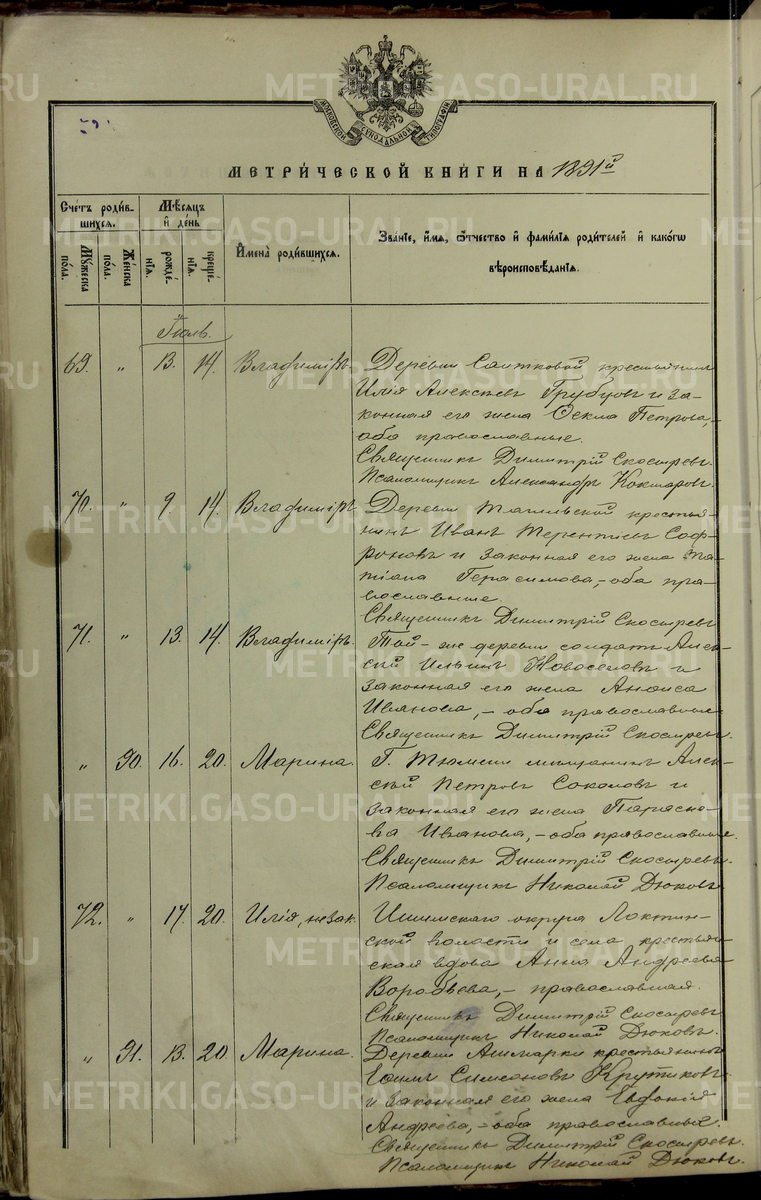 METRIKI.GASO-URAL.RU
МОСКОВСКОЙ СѴНОДАЛЬНОЙ ТИПОГРАФІИ
МЕТРИ́ЧЕСКОЙ КНИ́ГИ НА 1891й
Сче́тъ роди́в-
шихся.
Мѣ́сяцъ
и̂ де́нь
Му́жеска
по́ла.
Же́нска
по́ла.
рожде́-
нїя.
креще́-
нїя.
И҆мена̀ роди́вшихся.
Зва́нїе, и҆́мя, ѻ҆́тчество и҆ фами́лїя роди́телей и҆ како́гѡ
вѣроисповѣ́данїя.
Іюль.
69. " 13. 14. Владиміръ. Деревни Саитковой крестьянинъ
Илія Алексѣевъ Трубцовъ и за-
конная его жена Ѳекла Петрова,
оба православные.
Священникъ Димитрій Скосыревъ.
Псаломщикъ Александръ Кокшаровъ.
70. " 9. 14. Владиміръ. Деревни Тагильской крестья-
нинъ Иванъ Терентьевъ Соф-
роновъ и законная его жена Та-
тіана Герасимова,- оба пра-
вославные.
Священникъ Димитрій Скосыревъ
71. " 13. 14. Владиміръ. Той-же деревни солдатъ Алек-
сѣй Ильинъ Новоселовъ и
законная его жена Анѳиса
Иванова, - оба православные
Священникъ Димитрій Скосыревъ.
" 90. 16. 20. Марина. Г. Тюмени мѣщанинъ Алек-
сѣй Петровъ Соколовъ и
законная его жена Параске-
ва Иванова, - оба православные.
Священникъ Димитрій Скосыревъ.
Псаломщикъ Николай Дюковъ
72. " 17. 20. Илія, незак. Ишимскаго округа Локтин-
ской волости и села крестьян-
ская вдова Анна Андреева
Воробьева, - православная.
Священникъ Димитрій Скосыревъ
Псаломщикъ Николай Дюковъ.
" 91. 13. 20. Марина. Деревни Ашмарки крестьянинъ
Симеоновъ Крутиковъ
и законная его жена Евдокія
Андреева, - оба православные.
Священникъ Димитрій Скосыревъ.
Псаломщикъ Николай Дюковъ.